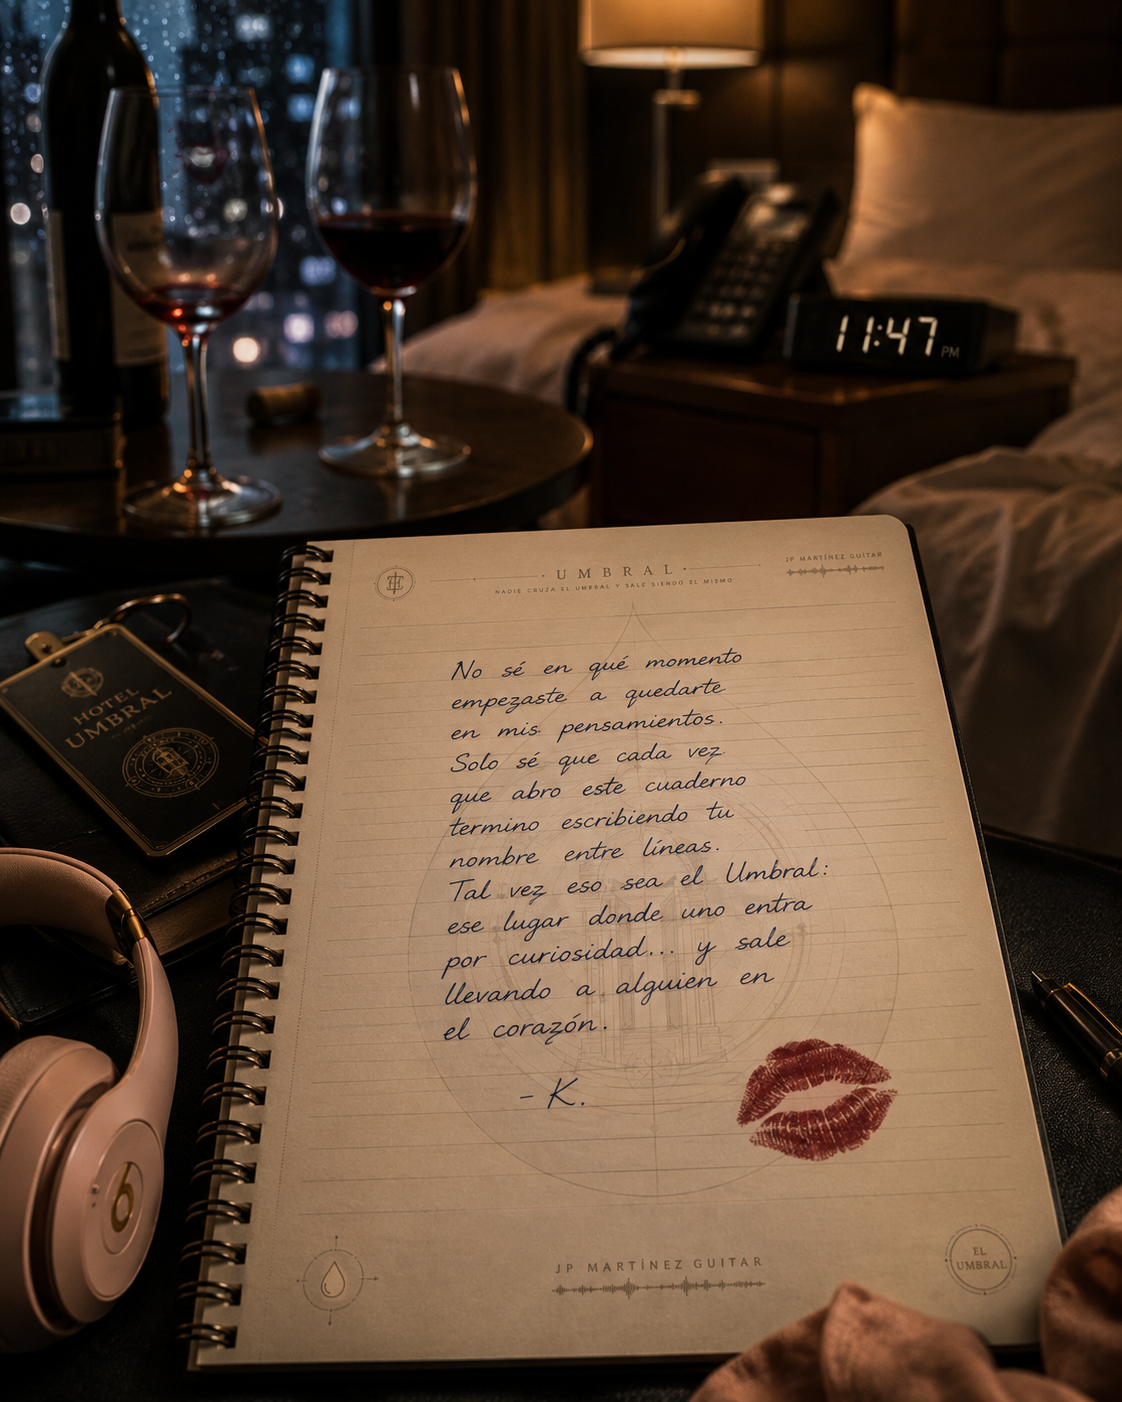 11:47 PM
UMBRAL
NADIE CRUZA EL UMBRAL Y SALE SIENDO EL MISMO
JP MARTÍNEZ GUITAR
HOTEL
UMBRAL
No sé en qué momento
empezaste a quedarte
en mis pensamientos.
Solo sé que cada vez
que abro este cuaderno
termino escribiendo tu
nombre entre líneas.
Tal vez eso sea el Umbral:
ese lugar donde uno entra
por curiosidad... y sale
llevando a alguien en
el corazón.
- K.
JP MARTÍNEZ GUITAR
EL
UMBRAL